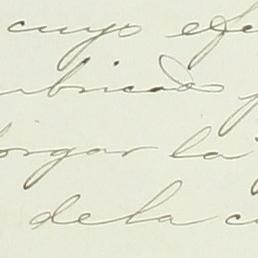 cuyo efe
ubricado y
orgar la
de la c